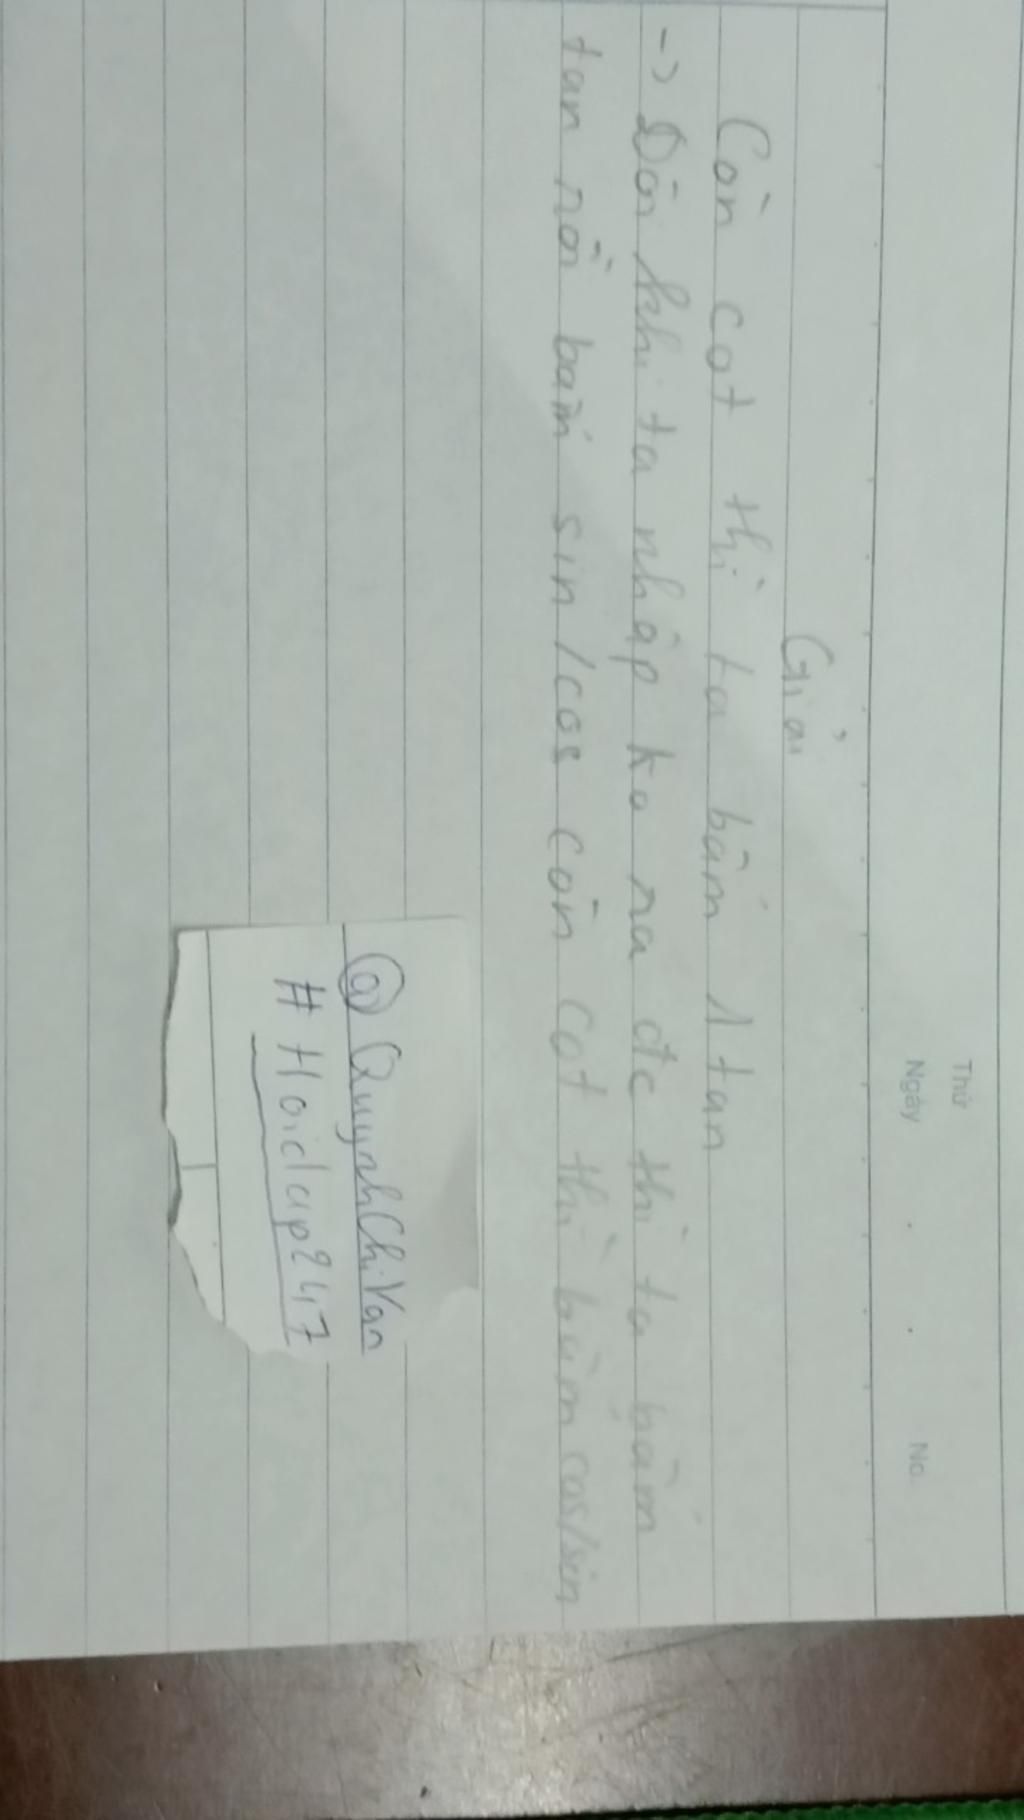 Thứ
Ngày
No.
Giải
Còn cot thì ta bấm 1 tan
-> Đôi khi ta nhập ko ra đc thì ta bấm
tan rồi bấm sin/cos còn cot thì bấm cos/sin
@QuynhChiVan
#Hoidap247